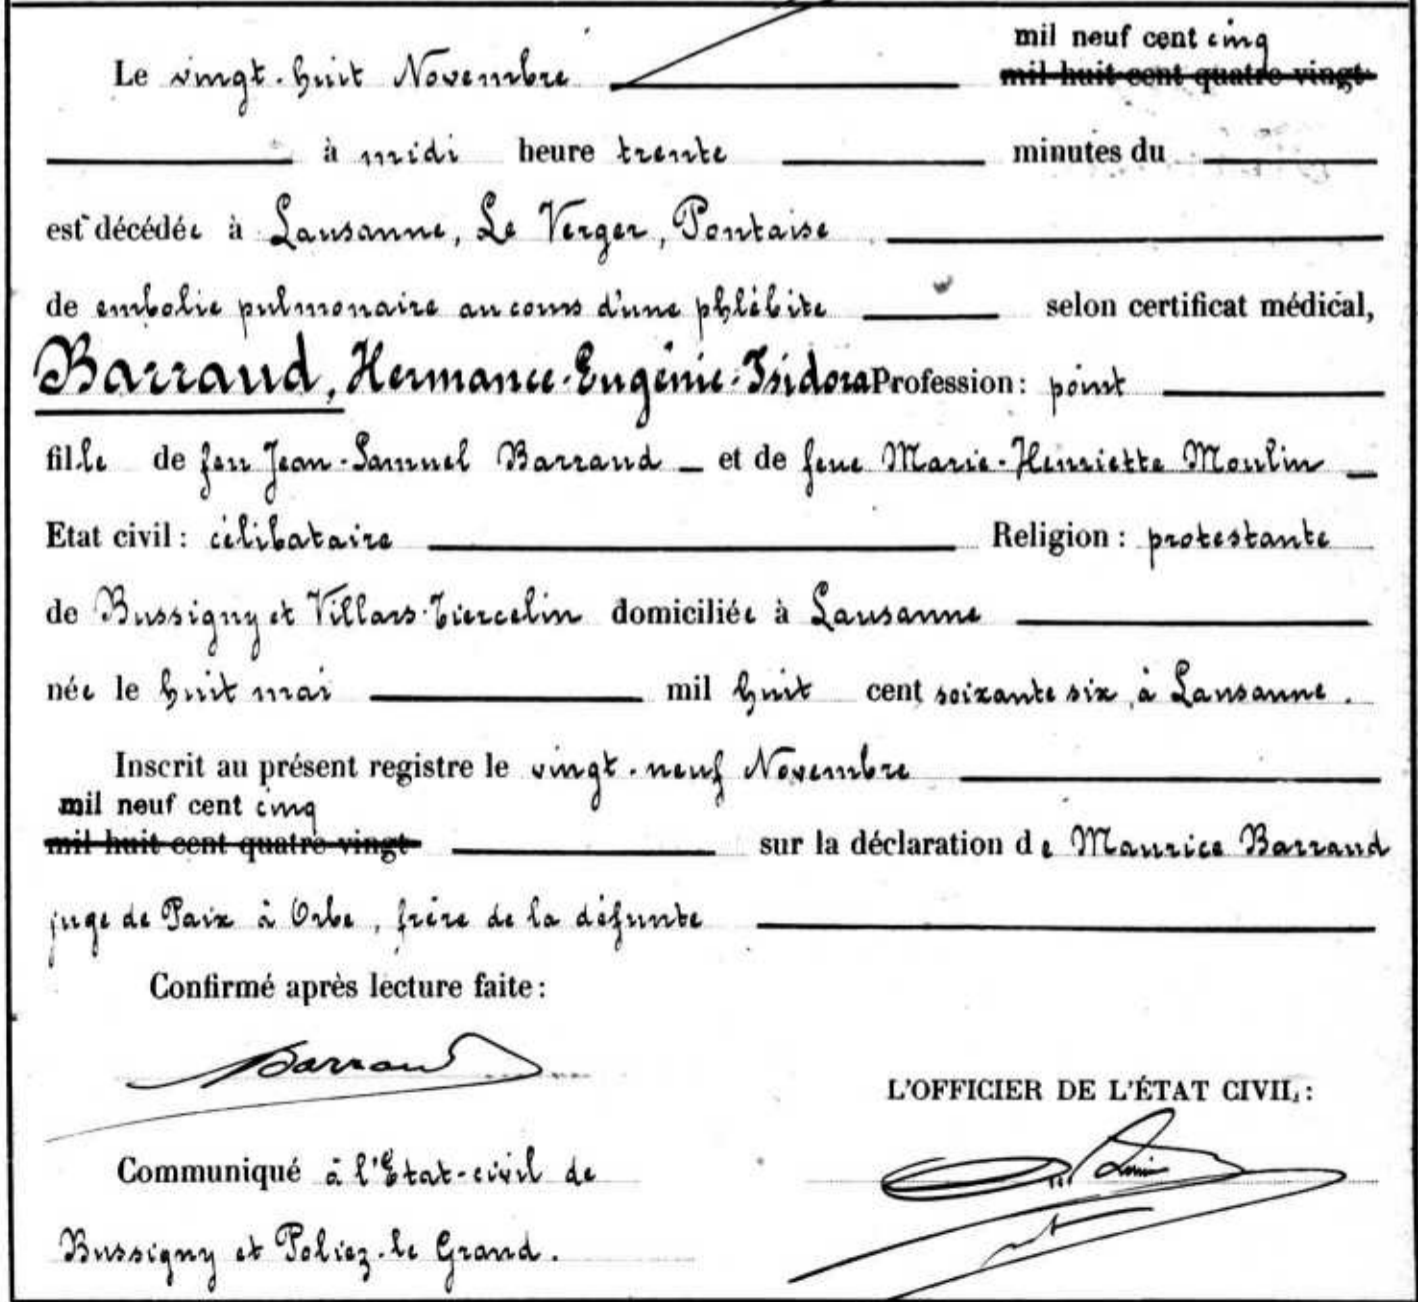 mil neuf cent cinq
Le vingt-huit Novembre mil huit cent quatre-vingt
à midi heure trente minutes du
est décédée à Lausanne, Le Verger, Pontaise
de embolie pulmonaire au cours d'une phlébite selon certificat médical,
Barraud, Hermance-Eugénie-Isidora Profession: point
fille de feu Jean-Samuel Barraud et de feue Marie-Henriette Moulin
Etat civil: célibataire Religion: protestante
de Bussigny et Villars-Tiercelin domiciliée à Lausanne
née le huit mai mil huit cent soixante six, à Lausanne.
Inscrit au présent registre le vingt-neuf Novembre
mil neuf cent cinq
mil huit cent quatre-vingt sur la déclaration de Maurice Barraud
juge de Paix à Orbe, frère de la défunte
Confirmé après lecture faite:
Barraud
L'OFFICIER DE L'ÉTAT CIVIL:
Communiqué à l'Etat-civil de
Bussigny et Poliez-le Grand.